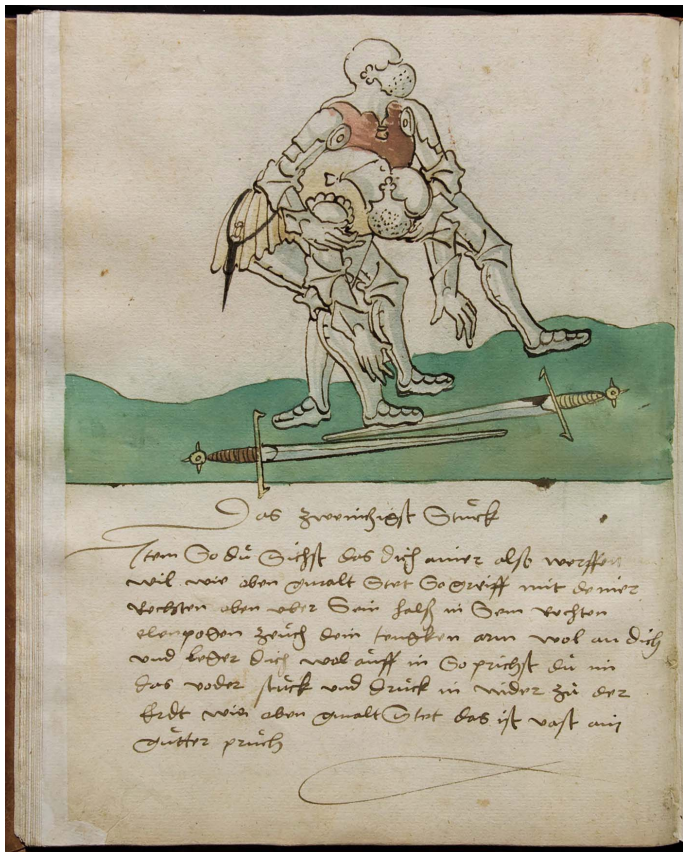 Das zwainzigst Stuck
Item So du Sichst das dich ainer also werffen
wil wie oben gmalt Stet So greiff mit deiner
Rechten oben vber Sein halß in Sein Rechten
elenpogen zeuch dein tengken arm wol an dich
vnd leger dich wol auff in So prichst du im
das voder stuck vnd druck in wider zu der
Erdt wie oben gmalt Stet das ist vast ain
gutter pruch